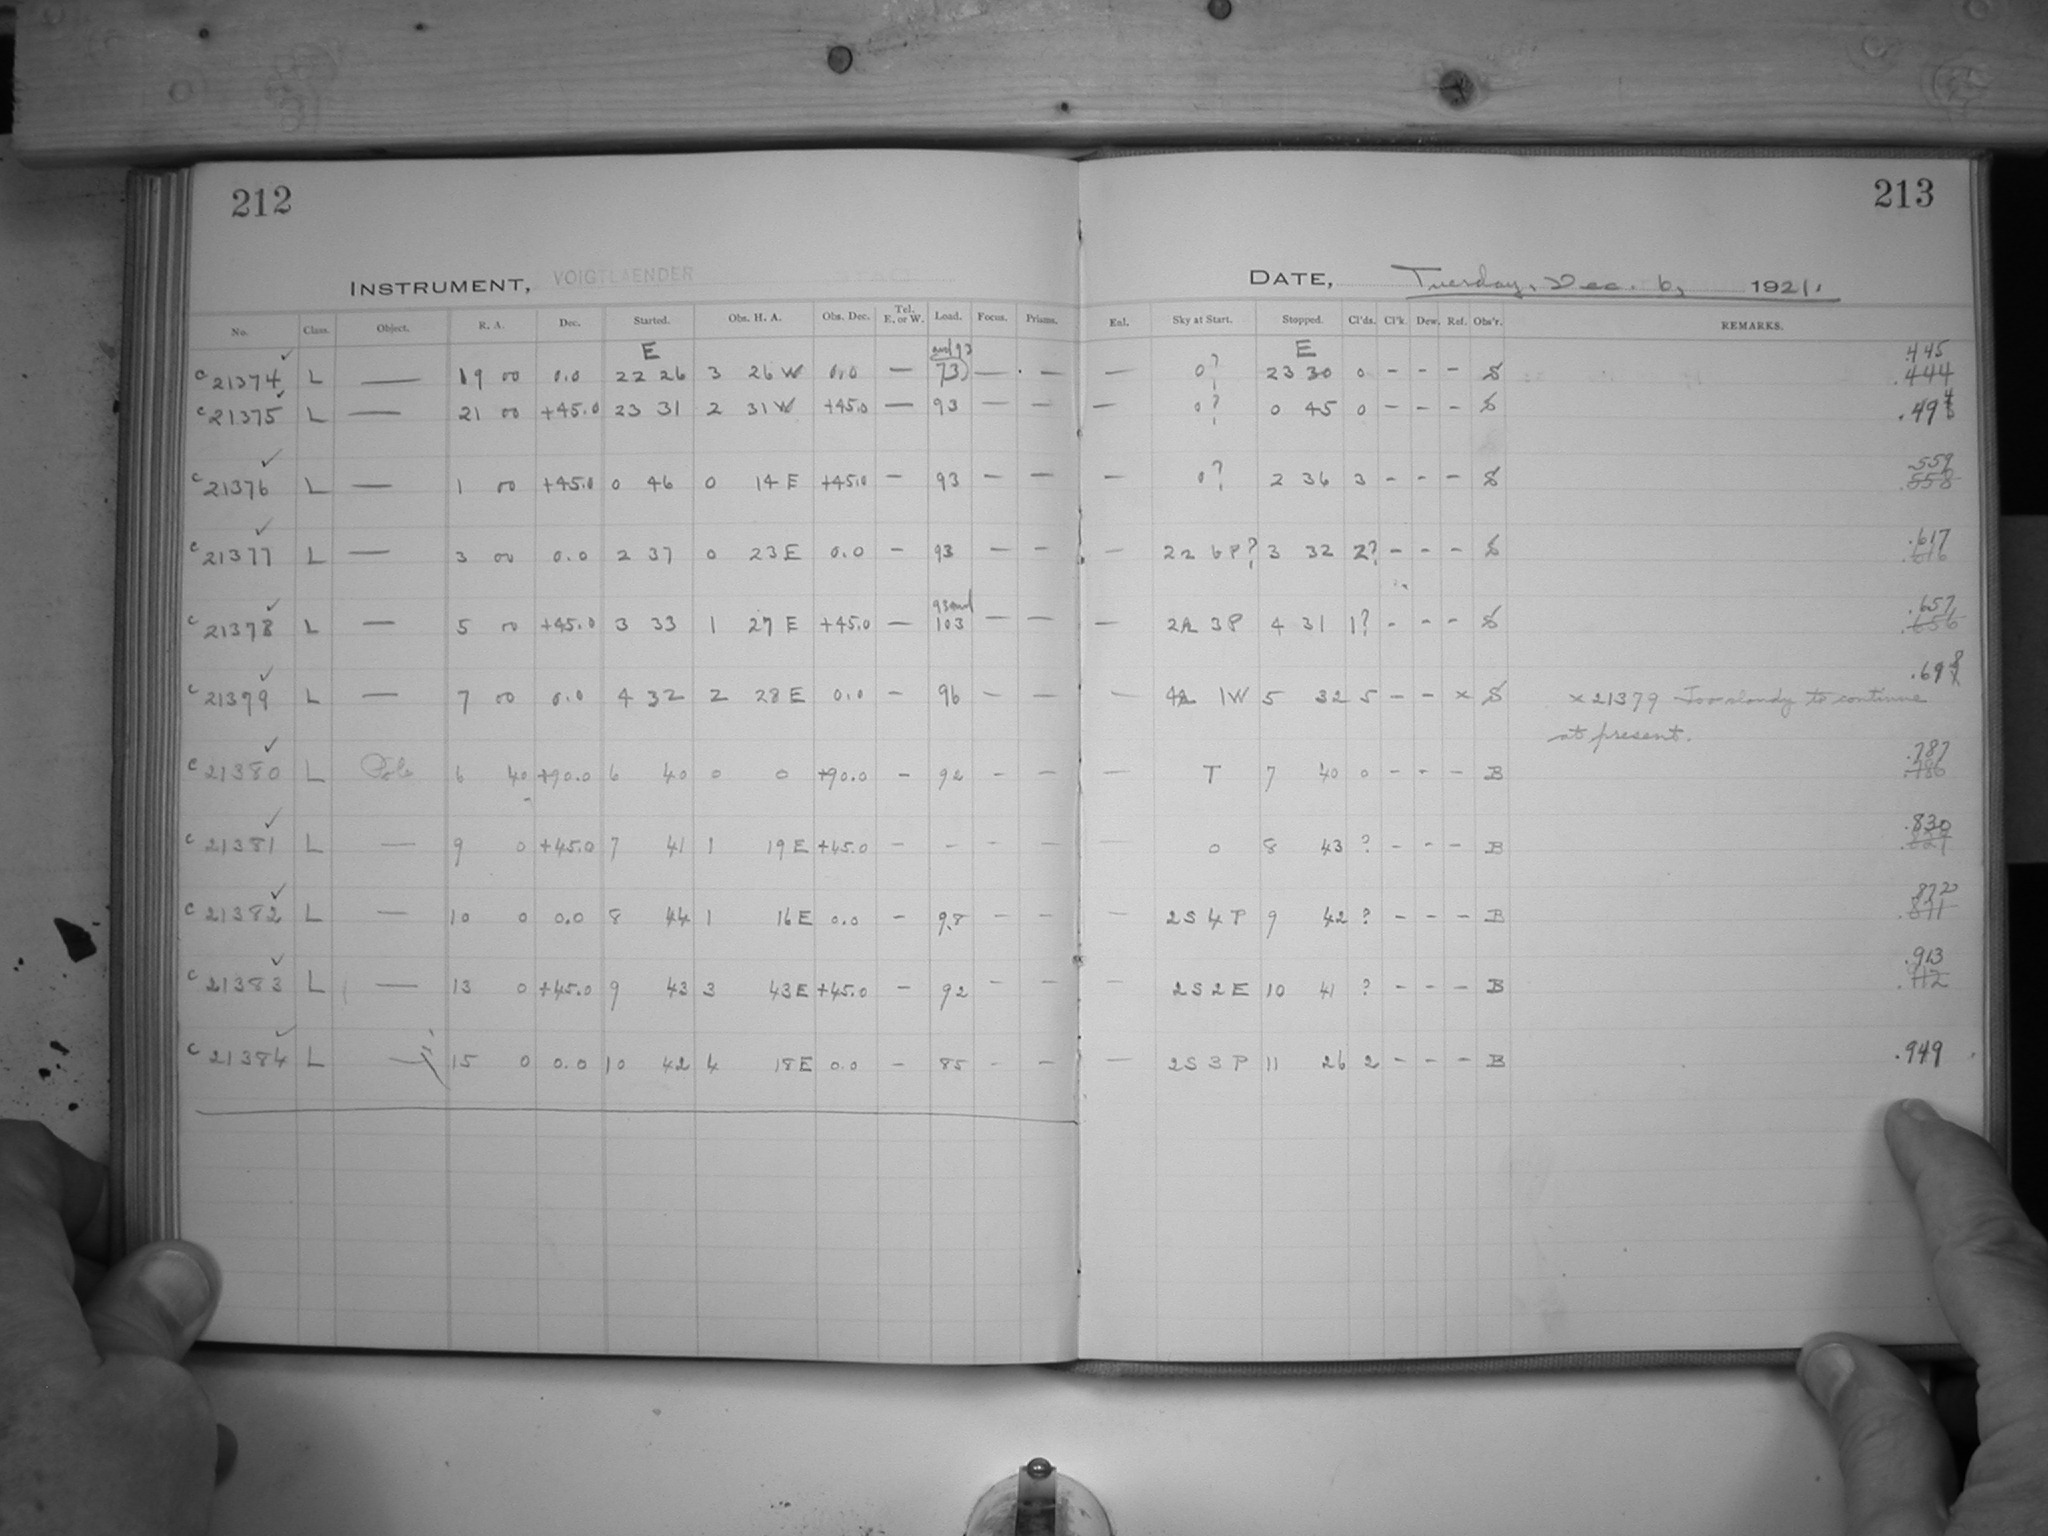 212
213
INSTRUMENT, VOIGTLAENDER
DATE, Tuesday, Dec. 6, 1921.
No. Class. Object. R. A. Dec. Started. Obs. H. A. Obs. Dec. Tel. E. or W. Load. Focus. Prisms. Enl. Sky at Start. Stopped. Cl'ds. Cl'k. Dew. Ref. Obs'r. REMARKS.
E and 93 E .445
c 21374 L — 19 00 0.0 22 26 3 26 W 0.0 — 73) — — — 0? 23 30 0 - - - S .444
c 21375 L — 21 00 +45.0 23 31 2 31 W +45.0 — 93 — — — 0? 0 45 0 - - - S .494
.559
c 21376 L — 1 00 +45.0 0 46 0 14 E +45.0 — 93 — — — 0? 2 36 3 - - - S .558
.617
c 21377 L — 3 00 0.0 2 37 0 23 E 0.0 — 93 — — — 2 2 6 P? 3 32 2? - - - S .616
93 and .657
c 21378 L — 5 00 +45.0 3 33 1 27 E +45.0 — 103 — — — 2A 3P 4 31 1? - - - S .656
.698
c 21379 L — 7 00 0.0 4 32 2 28 E 0.0 — 96 — — — 4A 1W 5 32 5 - - x S x 21379 Too cloudy to continue
at present.
.787
c 21380 L Pole 6 40 +90.0 6 40 0 0 +90.0 - 92 - — — T 7 40 0 - - - B .786
.830
c 21381 L — 9 0 +45.0 7 41 1 19 E +45.0 - - - - — 0 8 43 ? - - - B .829
.872
c 21382 L — 10 0 0.0 8 44 1 16 E 0.0 - 98 - - — 2S 4 P 9 42 ? - - - B .871
.913
c 21383 L — 13 0 +45.0 9 43 3 43 E +45.0 - 92 - - — 2S 2 E 10 41 ? - - - B .912
c 21384 L — 15 0 0.0 10 42 4 18 E 0.0 - 85 - - — 2S 3 P 11 26 2 - - - B .949